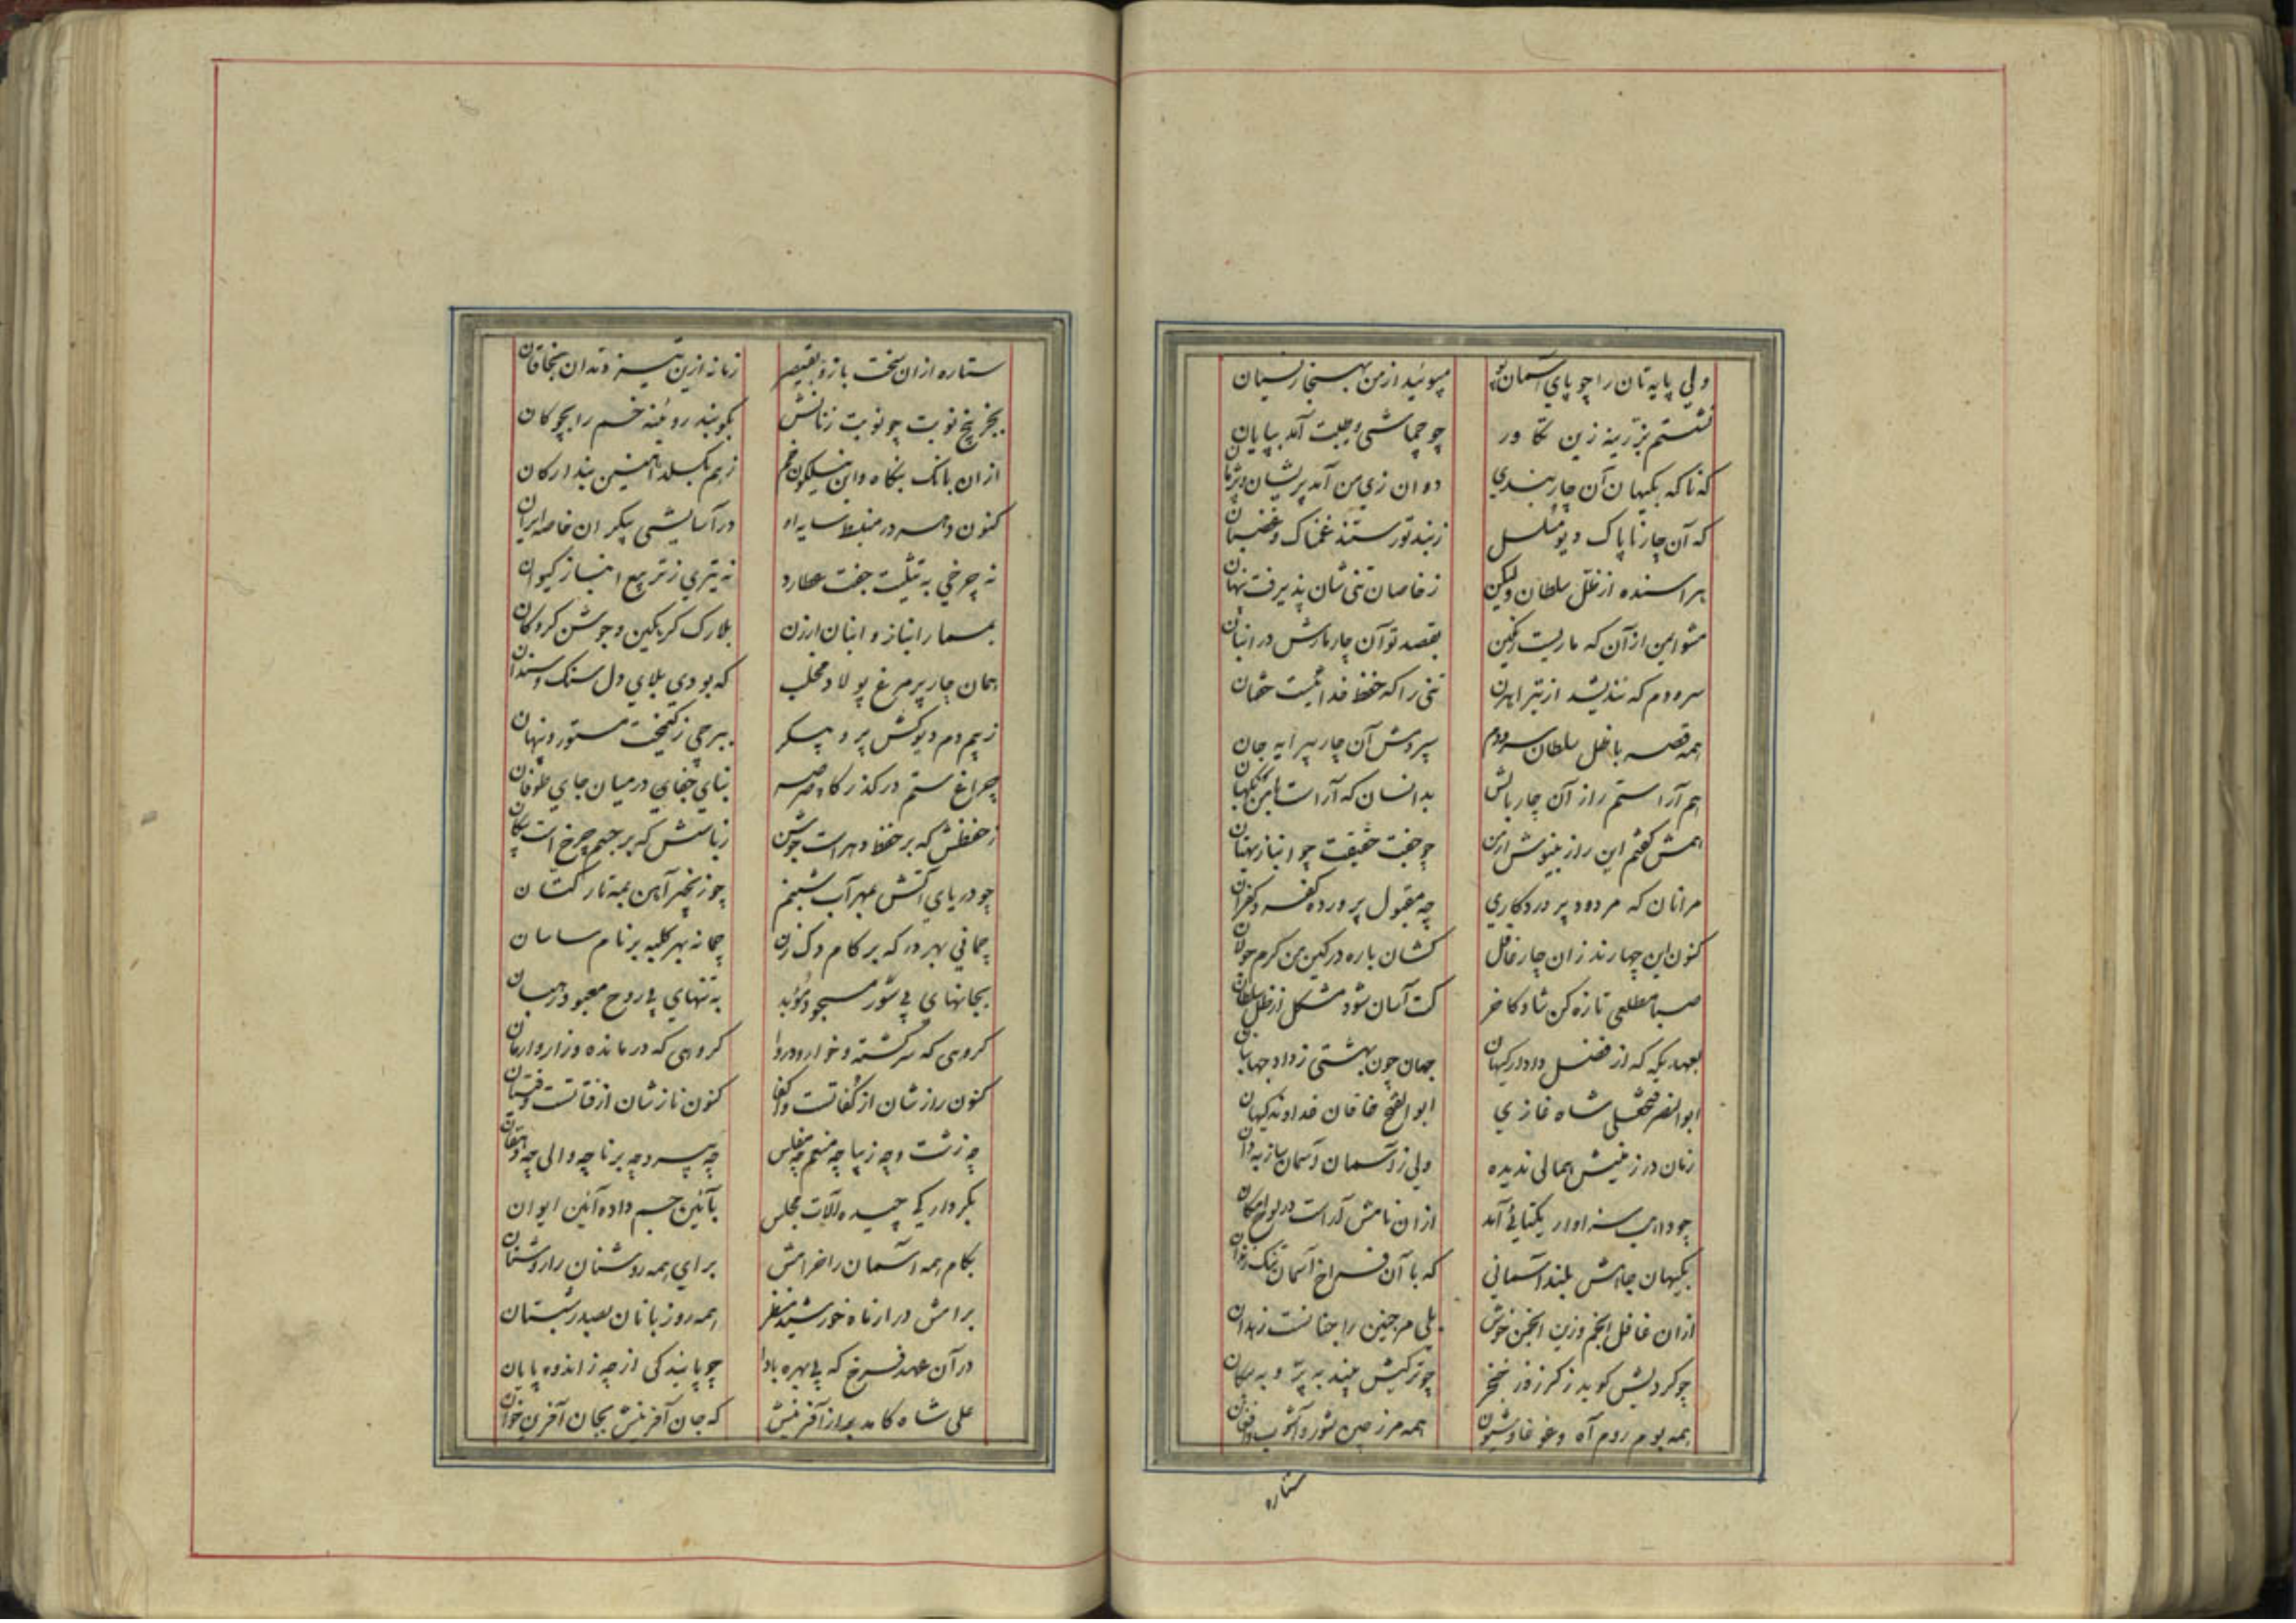 ولی پایه تان را چو پای آسمان نه مپوئید از من بهنجار نسیان
نشستم بزرینه زین تکاور چو چماشی وجبت آمد بپایان
که ناکه بکیهان آن چاربندی دوان زی من آمد پریشان و پژمان
که آن چار ناپاک دیو مسلسل زبند تو رستند غمناک و غضبان
هراسنده از ظل سلطان ولیکن ز خاصان تنی شان پذیرفت پنهان
مشو ایمن از آن که ماریست رنگین بقصد تو آن چار مارش در انبان
سرودم که نندیشد از تیر اهرن تنی را که حفظ خدائیست خفتان
همه قصه با ظل سلطان سرودم سپردمش آن چار پیرایه جان
هم آراستم راز آن چار بالش بدانسان که آراست با من نگهبان
همش گفتم این راز بنیوش از من چو جفت حقیقت چو انباز بهتان
مرانان که مردود پروردکاری چه مقبول پرورده کفر و کفران
کنون این چهارند زان چار غافل کشان باره در کین من کرم جولان
صبا مطلعی تازه کن شاد کاخر کت آسان شود مشکل از ظل سلطان
بعهد یکه که از فضل دادار کیهان جهان چون بهشتی ز داد جهانبان
ابوالنصر فتحعلی شاه غازی ابوالفتح خاقان خداوند کیهان
زمان در زمینش همالی ندیده ولی ز آسمان و آسمان ساز یزدان
چو دادیب سزاوار یکتائی آمد از ان نامش آراست در لوح امکان
بکیهان جاهش بلند آسمانی که با آن فراخ آسمان تنک زندان
از ان غافل انجم وزین انجمن خوش بلی مر جنین را جنانست زهدان
چو کردیش کوید ز کرز و ز خنجر چو ترکیش بیند به پر و به پیکان
همه بوم روم آه و غوغا و شیون همه مرز چین شور و آشوب و افغان
ستاره
ستاره از ان سخت بازو بقیصر زمانه ازین تیز دندان بخاقان
بخر پنج نوبت چو نوبت زنانش بکوبند روئینه خم را بچوکان
از ان بانک بنکاه و این نیلکون خم ز هم بکسلد آهنین بند ارکان
کنون دهر در منبسط سایه او در آسایشی پیکران خاصه ایران
نه چرخی به تثلیث جفت عطارد نه تیری ز تربیع انباز کیوان
بمسمار انباز و انبان ارزن بلارک کرنکین و جوشن کروکان
همان چار پر مرغ پولاد مخلب که بودی بلای دل سنک و سندان
ز بیم دم دیوکش پر و پیکر ببرجی ز کیمخت مستور و پنهان
چراغ ستم در کذرکاه صرصر بنای جفای در میان جای طوفان
ز حفظش که بر حفظ دهر است جوشن ز باسش که بر جسم چرخ است پیکان
چو دریای آتش بهر آب شبنم چو زنجیر آهن بمه تار کتان
چمانی بهر در که بر کام دک زن چمانه بهر کلبه بر نام ساسان
بجانهای پی شور مسجود مؤبد به تنهای پی روح معبود رهبان
کروهی که سرکشته و خوار و دروا کروهی که درمانده و زار و ارمان
کنون رازشان از کفاتست و اکفا کنون نازشان از فتاتست و فتیان
چه زشت و چه زیبا چه منعم چه مفلس چه پیر و چه برنا چه والی چه دهقان
بکردار کی چیده آلات مجلس بآئین جم داده آئین ایوان
بکام همه آسمان را خرامش برای همه روشنان را روشنان
برامش در ار ماه خورشید منظر همه روز بانان بصید شبستان
در آن عهد فرخ که پی بهره بادا چو پایندکی از چه ز اندوه پایان
علی شاه کامد به از آفرینش که جان آفرینش بجان آفرین خوان